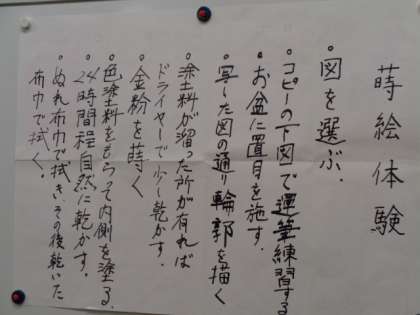 蒔絵体験
•図を選ぶ.
•コピーの下図で運筆練習する
•お盆に置目を施す.
•写した図の通り輪郭を描く
•塗土料が溜った所が有れば
ドライヤーで少し乾かす.
•金粉を蒔く
•色塗土料をもらって内側を塗る.
•24時間程自然に乾かす.
•ぬれ布巾で拭き、その後乾いた
布巾で拭く.